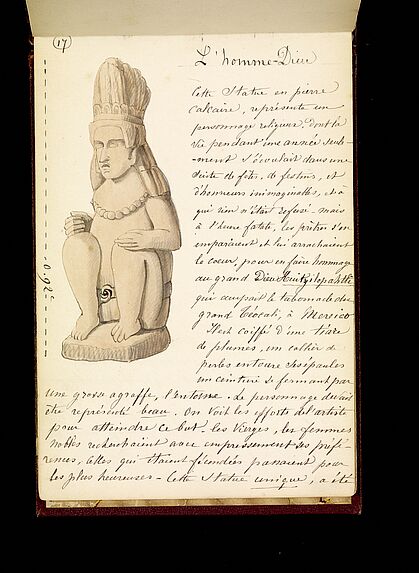 (17)
L'homme-Dieu
Cette Statue en pierre
calcaire, représente un
personnage religieux, dont la
vie pendant une année seule-
-ment s'écoulait dans une
suite de fêtes, de festins, et
d'honneurs inimaginables, et à
qui rien n'était refusé - mais
à l'heure fatale, les prêtres s'en
emparaient et lui arrachaient
le coeur, pour en faire hommage
au grand Dieu
qui occupait le tabernacle du
grand Téocali, à Mexico
Il est coiffé d'une tiare
de plumes, un collier de
perles entoure ses épaules
un ceinture se fermant par
une grosse agraffe, l'entoure. Le personnage devait
être représenté beau. On voit les efforts de l'artiste
pour atteindre ce but. les Vierges, les femmes
nobles recherchaient avec empressement ses préfé-
rences, celles qui étaient fécondées passaient pour
les plus heureuses - Cette Statue unique, a été
0.92c